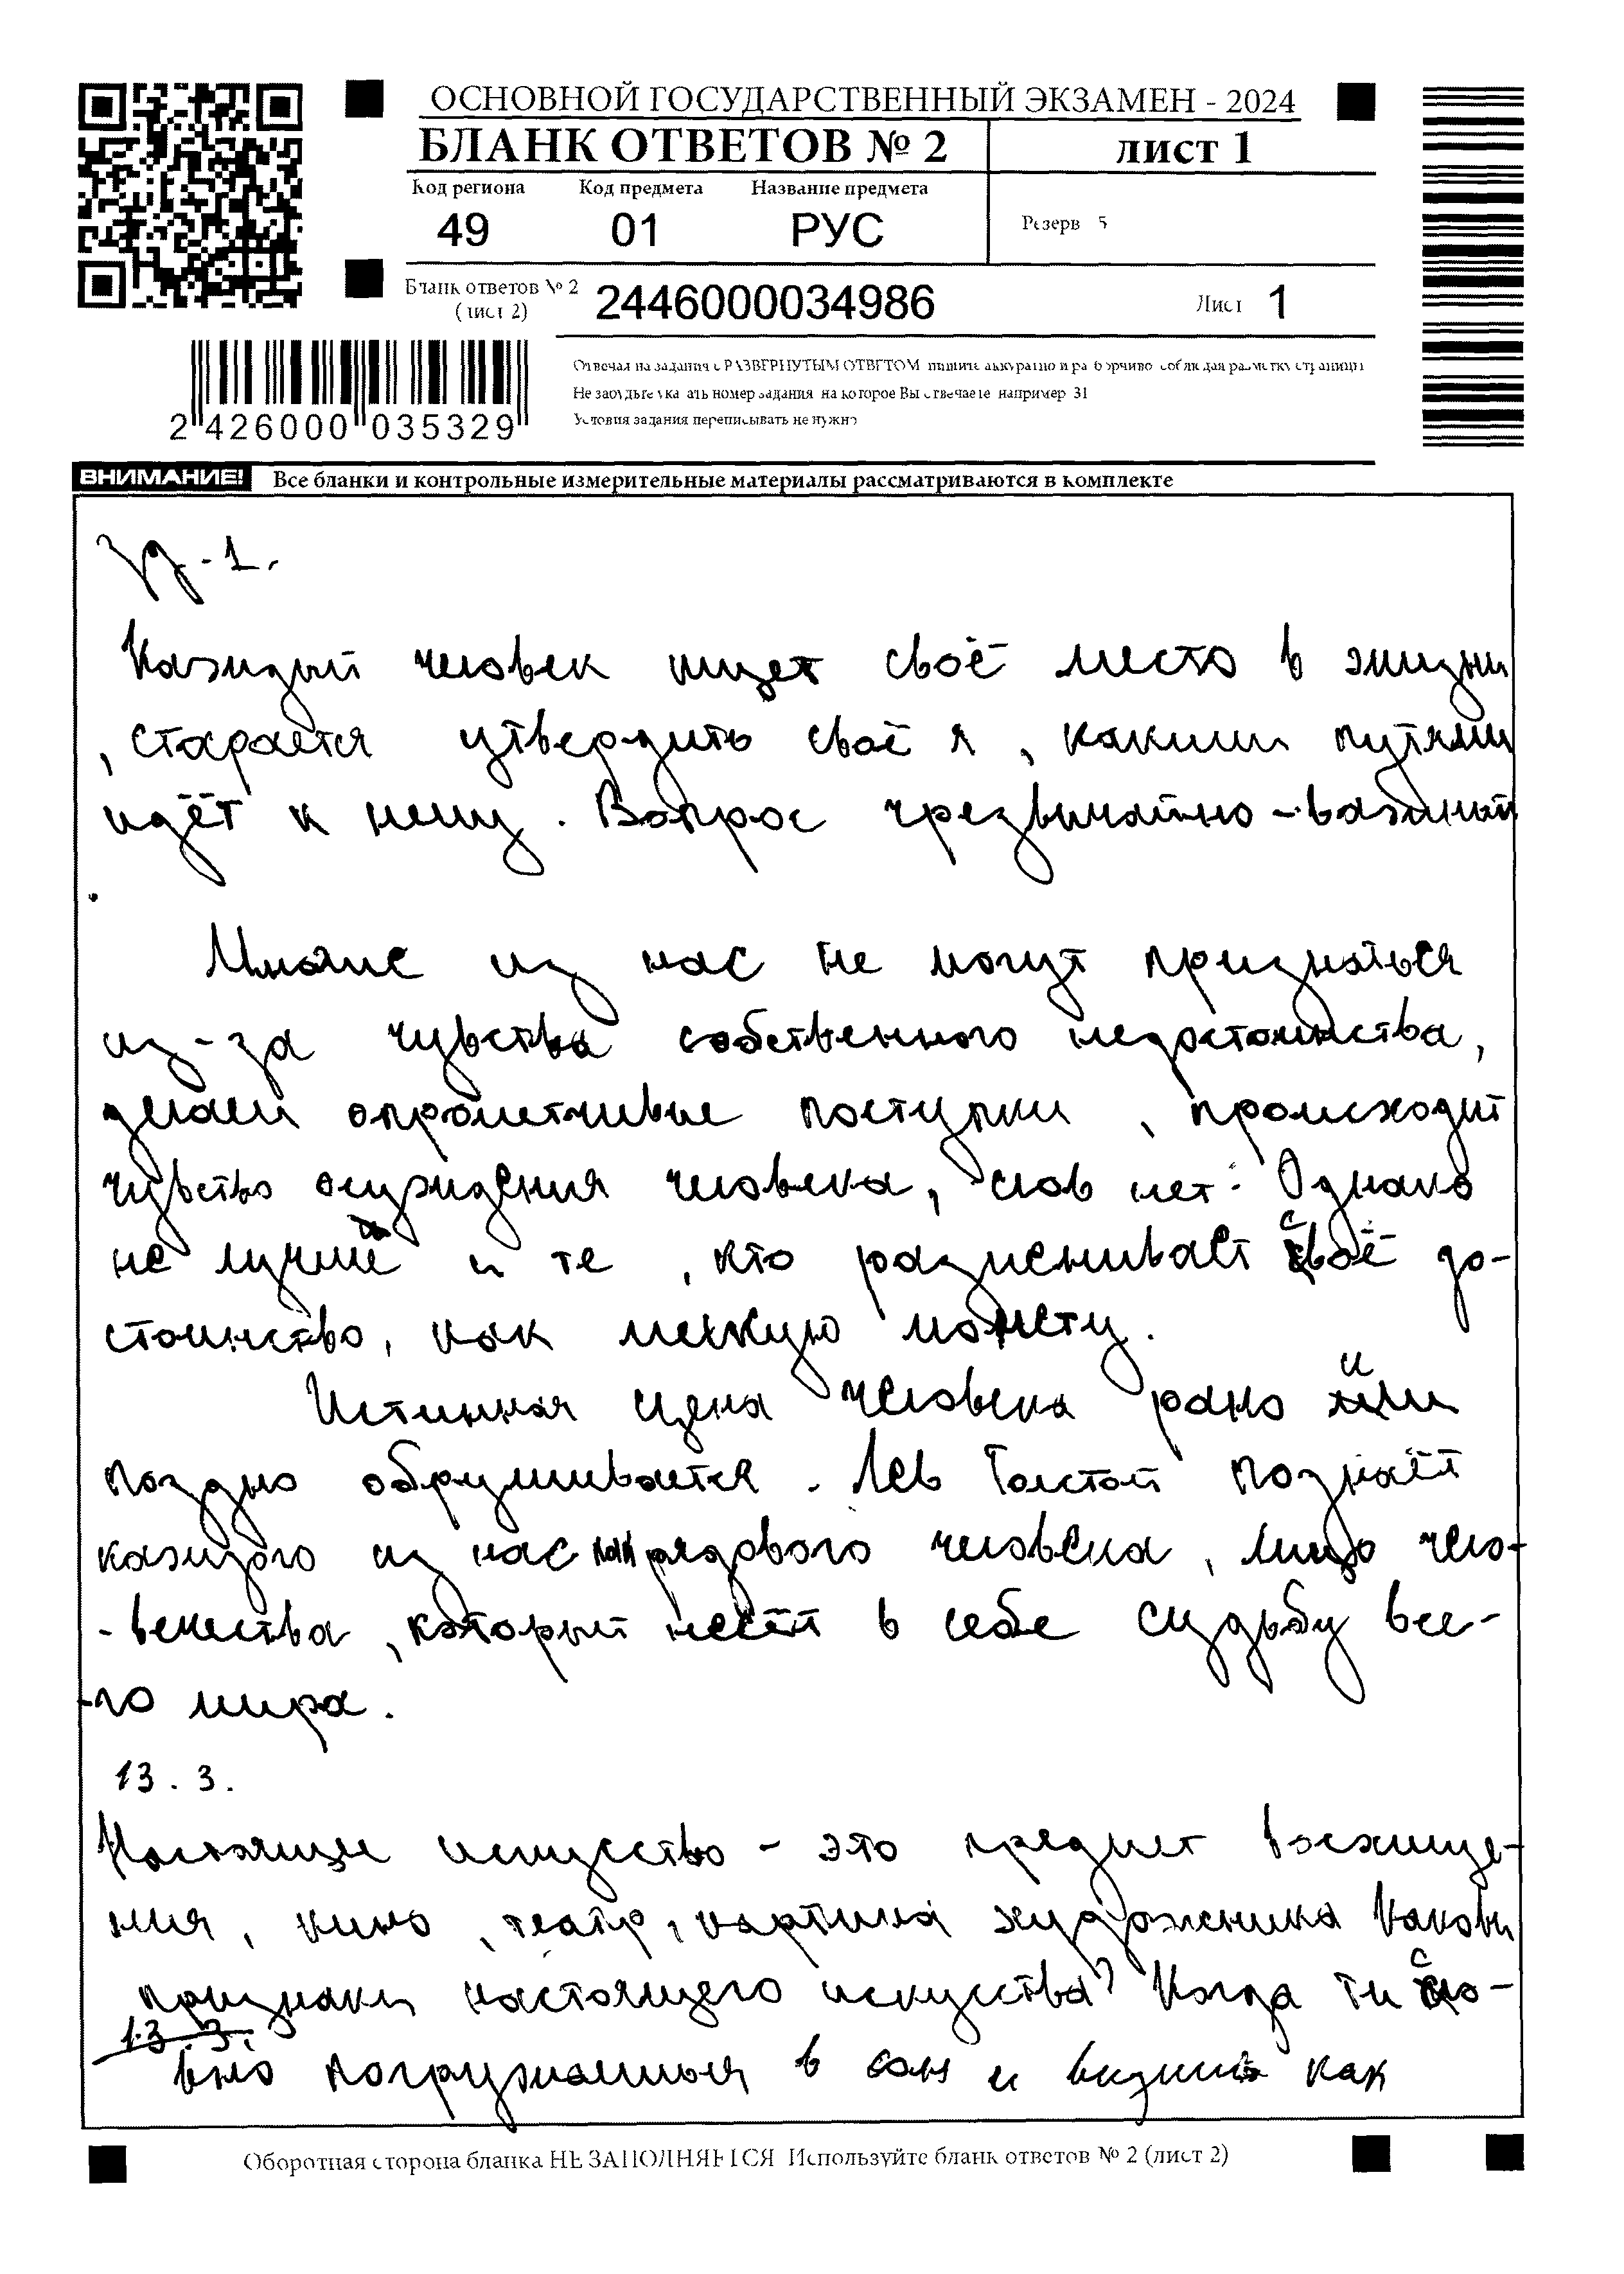 ОСНОВНОЙ ГОСУДАРСТВЕННЫЙ ЭКЗАМЕН - 2024
БЛАНК ОТВЕТОВ № 2
лист 1
Код региона Код предмета Название предмета
49 01 РУС
Резерв 5
Бланк ответов № 2
(лист 2)
2446000034986
Лист 1
2 426000 035329
Отвечая на задания с РАЗВЕРНУТЫМ ОТВЕТОМ пишите аккуратно и разборчиво соблюдая разметку страницы
Не забудьте указать номер задания на которое Вы отвечаете например 31
Условия задания переписывать не нужно
ВНИМАНИЕ! Все бланки и контрольные измерительные материалы рассматриваются в комплекте
Зд-1.
Каждый человек ищет своё место в жизни
, старается утвердить своё я, какими путями
идёт к нему. Вопрос чрезвычайно-важный
.
Многие из нас не могут признаться
из-за чувства собственного недостоинства,
делаем опрометчивые поступки, происходит
чувство осуждения человека, слов нет. Однако
не лучше и те, кто разменивает своё до-
стоинство, как мелкую монету.
Истинная цена человека рано или
поздно обрушивается. Лев Толстой познаёт
каждого из нас как рядового человека, лицо чело-
-вечества, который несёт в себе судьбу все-
-го мира.
13.3.
Настоящее искусство - это предмет восхище-
ния, кино, театр, картина художника Каковы
признаки настоящего искусства? Когда ты сло-
13.3.
вно погружаешься в сон и видишь как
Оборотная сторона бланка НЕ ЗАПОЛНЯЕТСЯ Используйте бланк ответов № 2 (лист 2)